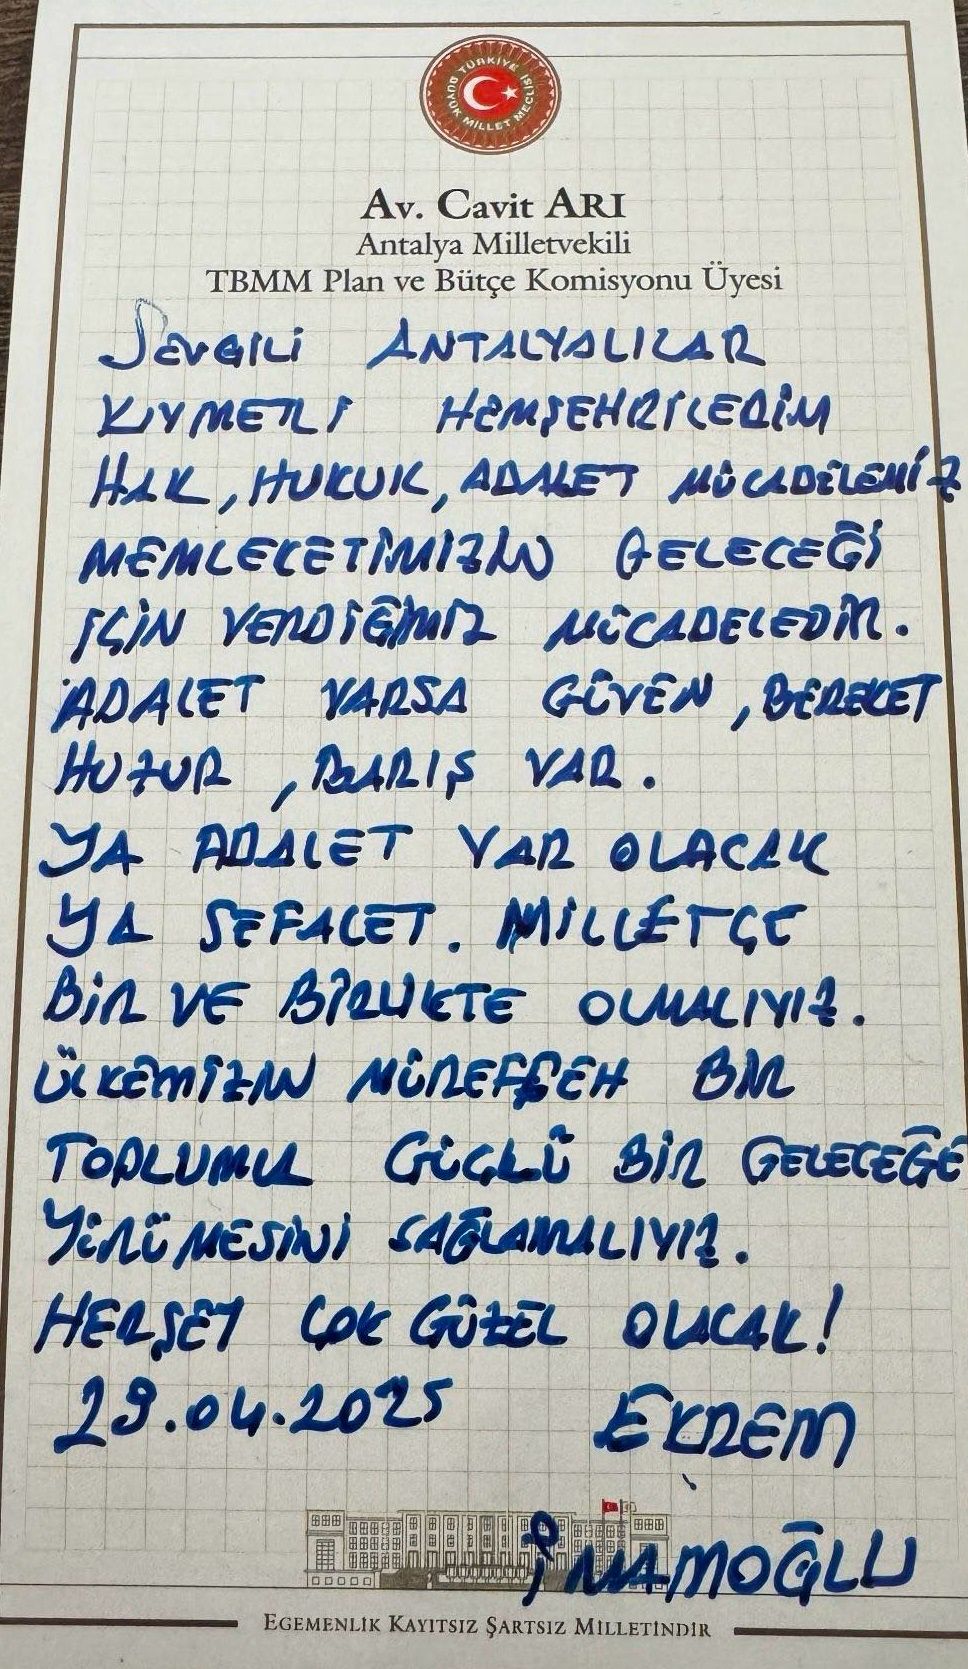 TÜRKİYE BÜYÜK MİLLET MECLİSİ
Av. Cavit ARI
Antalya Milletvekili
TBMM Plan ve Bütçe Komisyonu Üyesi
SEVGİLİ ANTALYALILAR
KIYMETLİ HEMŞEHRİLERİM
HAK, HUKUK, ADALET MÜCADELEMİZ
MEMLEKETİMİZİN GELECEĞİ
İÇİN VERDİĞİMİZ MÜCADELEDİR.
ADALET VARSA GÜVEN, BEREKET
HUZUR, BARIŞ VAR.
YA ADALET VAR OLACAK
YA SEFALET. MİLLETÇE
BİR VE BİRLİKTE OLMALIYIZ.
ÜLKEMİZİN MÜREFFEH BİR
TOPLUMLA GÜÇLÜ BİR GELECEĞE
YÜRÜMESİNİ SAĞLAMALIYIZ.
HERŞEY ÇOK GÜZEL OLACAK!
29.04.2025 EKREM
İMAMOĞLU
EGEMENLİK KAYITSIZ ŞARTSIZ MİLLETİNDİR